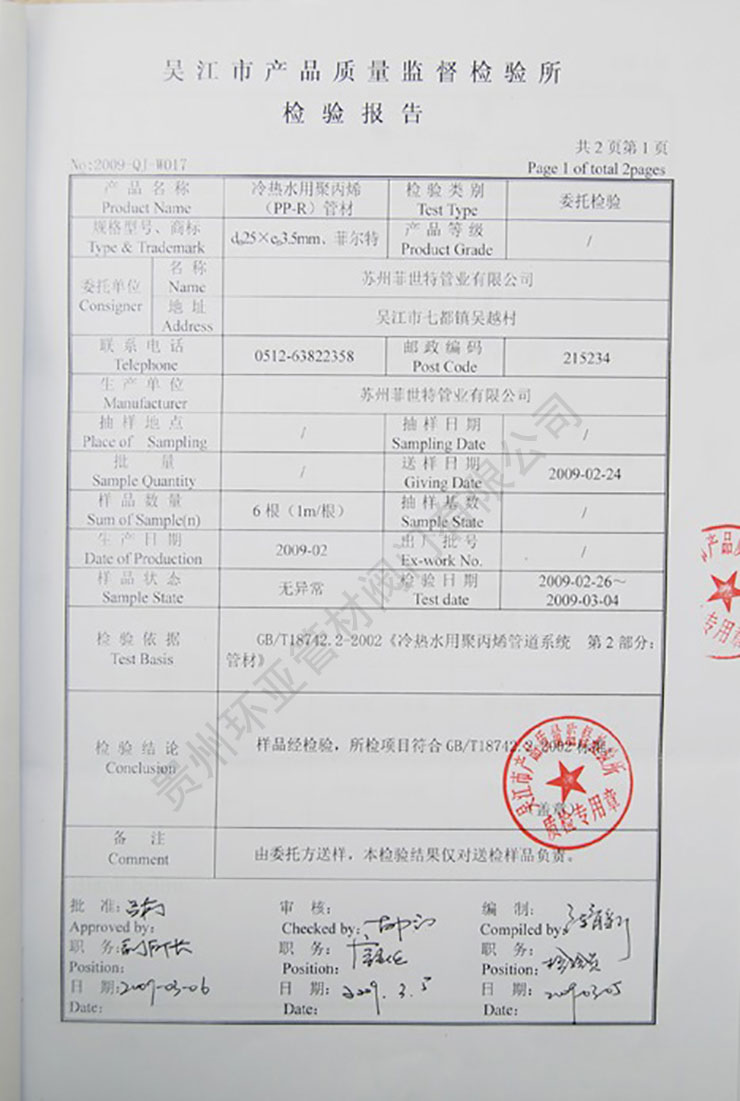 吴江市产品质量监督检验所
检验报告
共2页第1页
No:2009-QJ-W017
Page 1 of total 2pages
产品名称
Product Name
冷热水用聚丙烯
（PP-R）管材
检验类别
Test Type
委托检验
规格型号、商标
Type & Trademark
dn25×en3.5mm、菲尔特
产品等级
Product Grade
/
委托单位
Consigner
名称
Name
苏州菲世特管业有限公司
地址
Address
吴江市七都镇吴越村
联系电话
Telephone
0512-63822358
邮政编码
Post Code
215234
生产单位
Manufacturer
苏州菲世特管业有限公司
抽样地点
Place of Sampling
/
抽样日期
Sampling Date
/
批量
Sample Quantity
/
送样日期
Giving Date
2009-02-24
样品数量
Sum of Sample(n)
6根（1m/根）
抽样基数
Sample State
/
生产日期
Date of Production
2009-02
出厂批号
Ex-work No.
/
样品状态
Sample State
无异常
检验日期
Test date
2009-02-26～
2009-03-04
检验依据
Test Basis
GB/T18742.2-2002《冷热水用聚丙烯管道系统 第2部分：
管材》
检验结论
Conclusion
样品经检验，所检项目符合GB/T18742.2-2002标准。
（盖章）
吴江市产品质量监督检验所
质检专用章
产品质
专用章
备注
Comment
由委托方送样，本检验结果仅对送检样品负责。
批准：
Approved by:
职务：副所长
Position:
日期：2009-03-06
Date:
审核：
Checked by:
职务：
Position:
日期：2009.3.5
Date:
编制：
Compiled by:
职务：检验员
Position:
日期：2009.03.05
Date:
贵州环亚管材阀门有限公司